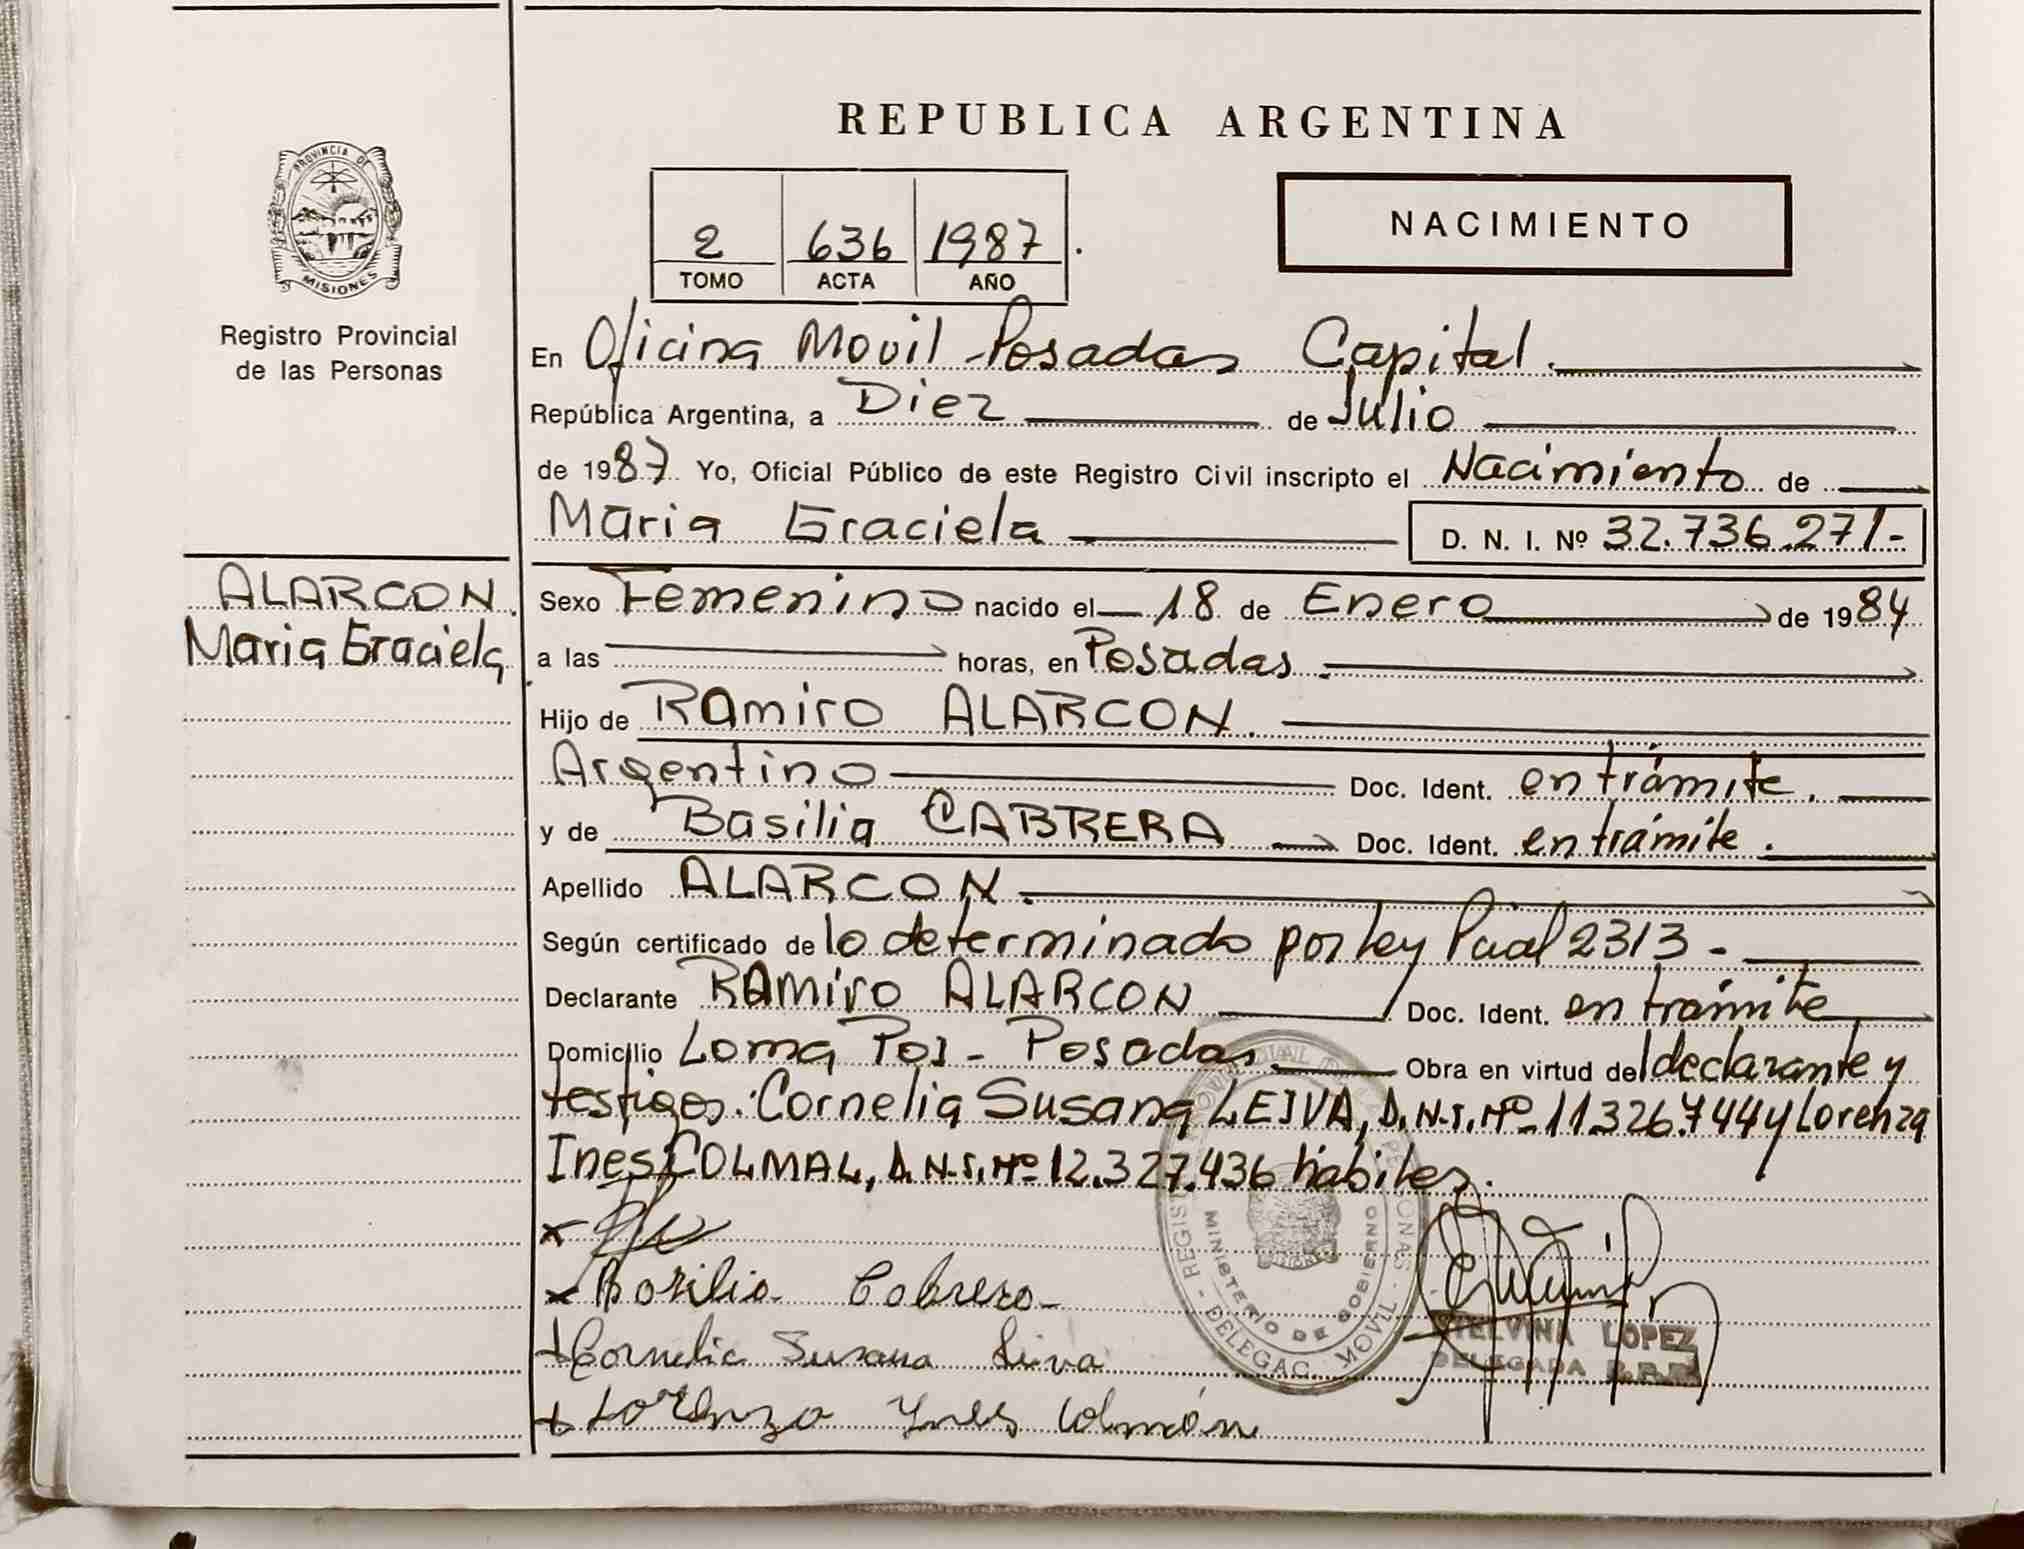 REPUBLICA ARGENTINA
PROVINCIA DE MISIONES
Registro Provincial
de las Personas
2 636 1987
TOMO ACTA AÑO
NACIMIENTO
En Oficina Movil - Posadas Capital.
República Argentina, a Diez de Julio
de 1987 Yo, Oficial Público de este Registro Civil inscripto el Nacimiento de
Maria Graciela D. N. I. Nº 32.736.271.-
ALARCON
Maria Graciela
Sexo Femenino nacido el 18 de Enero de 1984
a las horas, en Posadas.
Hijo de Ramiro ALARCON.
Argentino Doc. Ident. en trámite.
y de Basilia CABRERA Doc. Ident. en trámite.
Apellido ALARCON.
Según certificado de lo determinado por ley Pcial 2313 -
Declarante Ramiro ALARCON Doc. Ident. en trámite
Domicilio Loma Poi - Posadas Obra en virtud del declarante y
testigos: Cornelia Susana LEIVA, D.N.I. Nº 11.326.744 y Lorenza
Ines COLMAL, D.N.I. Nº 12.327.436 hábiles.
Basilia Cabrera
Cornelia Susana Leiva
Lorenza Ynes
MINISTERIO DE GOBIERNO
DELEGAC. MOVIL
ETELVINA LOPEZ
DELEGADA R.P.P.